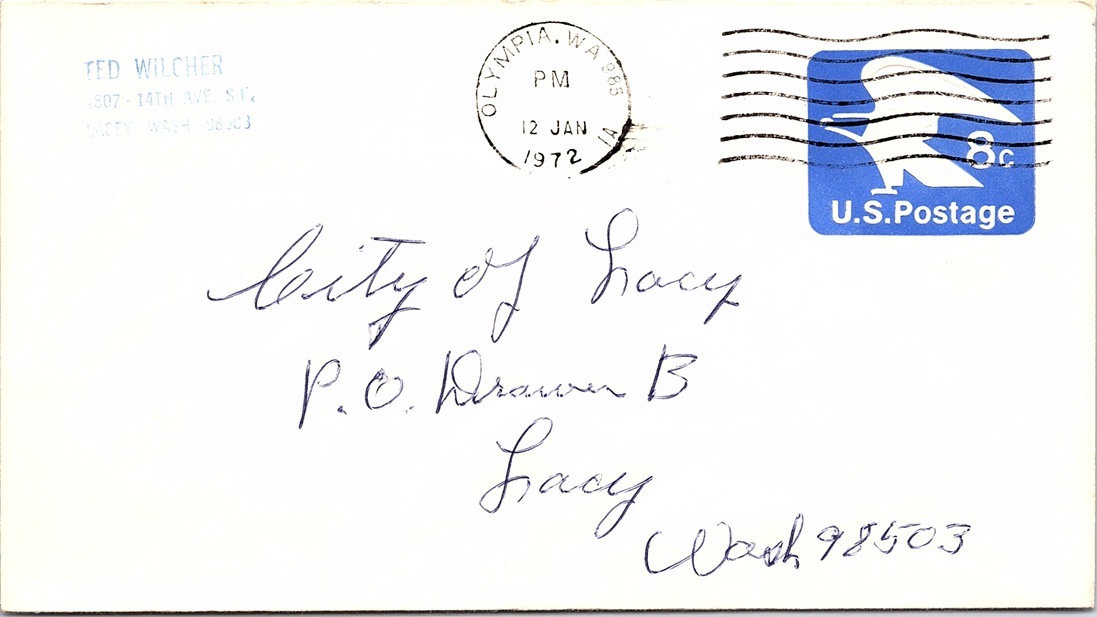 TED WILCHER
4807 - 14TH AVE. S.E.
LACEY, WASH 98503
OLYMPIA, WA 985
PM
12 JAN
1972
1A
8c
U.S. Postage
City of Lacy
P.O. Drawer B
Lacy
Wash 98503